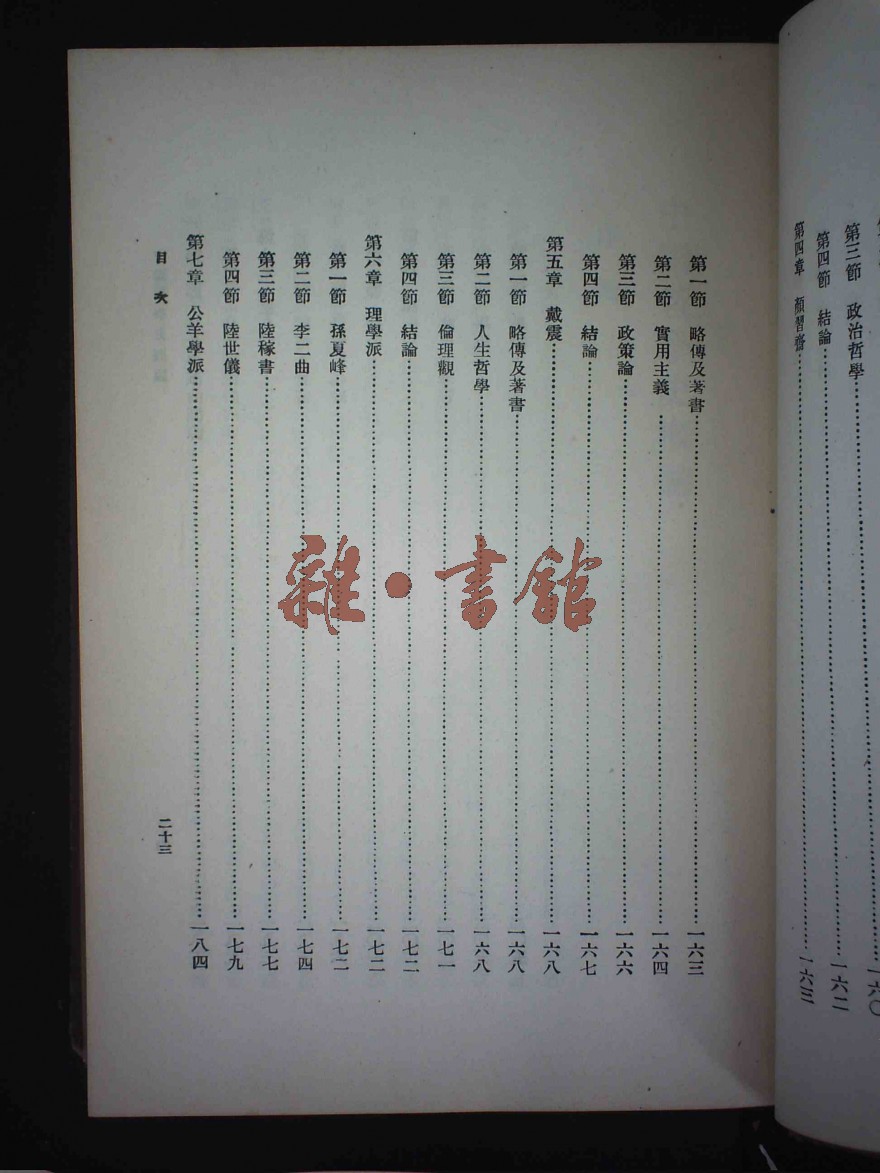 第三節　政治哲學……一六〇
第四節　結論……一六二
第四章　顏習齋……一六三
第一節　略傳及著書……一六三
第二節　實用主義……一六四
第三節　政策論……一六六
第四節　結論……一六七
第五章　戴震……一六八
第一節　略傳及著書……一六八
第二節　人生哲學……一六八
第三節　倫理觀……一七一
第四節　結論……一七二
第六章　理學派……一七二
第一節　孫夏峰……一七二
第二節　李二曲……一七四
第三節　陸稼書……一七七
第四節　陸世儀……一七九
第七章　公羊學派……一八四
目次　二十三
雜·書館